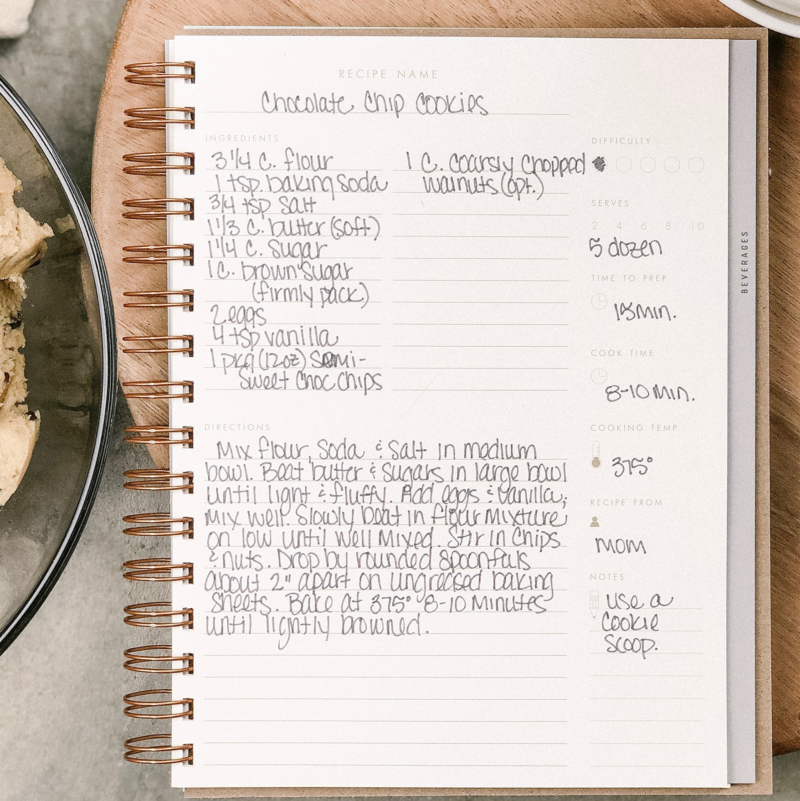 RECIPE NAME
Chocolate Chip Cookies
INGREDIENTS
3 1/4 C. flour
1 tsp. baking soda
3/4 tsp salt
1 1/3 C. butter (soft)
1 1/4 C. sugar
1 C. brown sugar
(firmly pack)
2 eggs
4 tsp vanilla
1 pkg (12oz) Semi-
Sweet Choc chips
1 C. coarsly chopped
walnuts (opt.)
DIFFICULTY
SERVES
2 4 6 8 10
5 dozen
TIME TO PREP
15 min.
COOK TIME
8-10 min.
COOKING TEMP
375°
RECIPE FROM
mom
NOTES
use a
cookie
scoop.
DIRECTIONS
Mix flour, soda & salt in medium
bowl. Beat butter & sugars in large bowl
until light & fluffy. Add eggs & vanilla;
mix well. Slowly beat in flour mixture
on low until well mixed. Stir in chips
& nuts. Drop by rounded spoonfuls
about 2" apart on ungreased baking
sheets. Bake at 375° 8-10 minutes
until lightly browned.
BEVERAGES